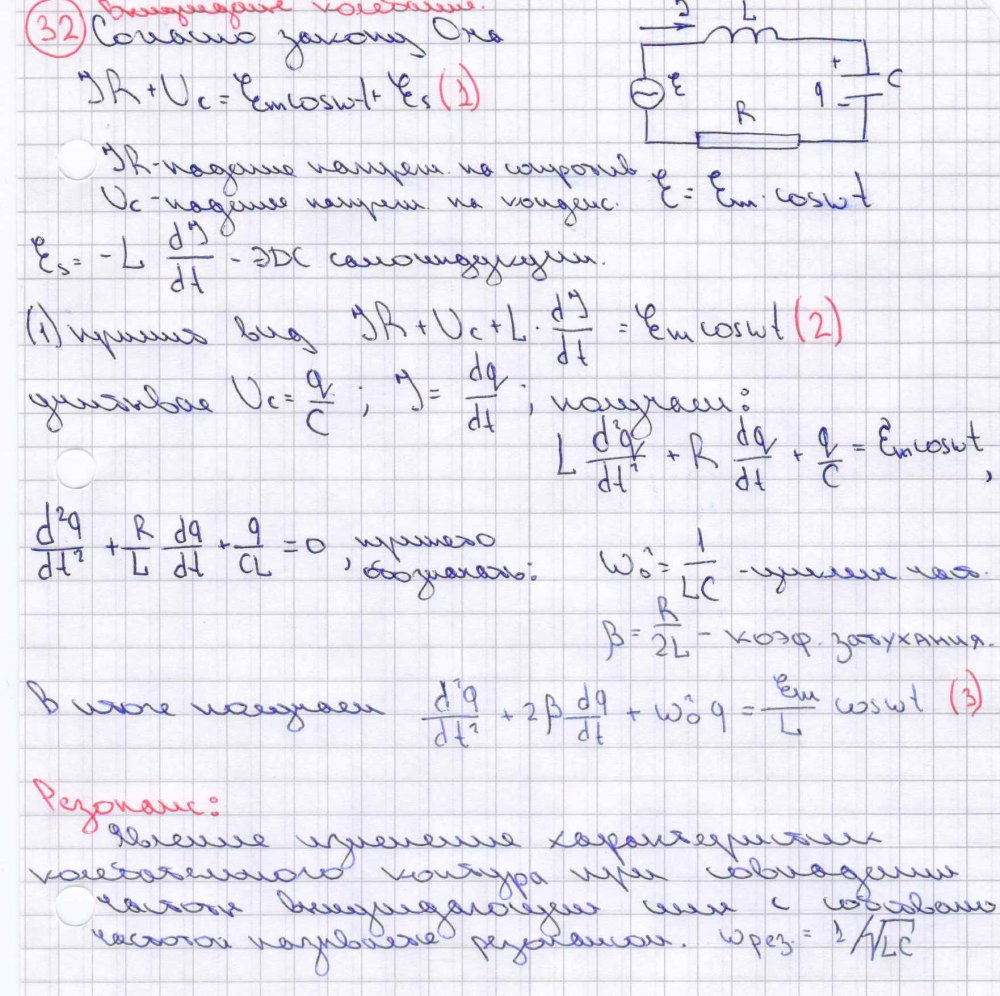 Вынужденые колебания.
32 Согласно закону Ома
JR + Uc = Ɛm cosωt + Ɛs (1)
J L
+ C
Ɛ q -
R
JR - падение напряж. на сопротив
Uc - падение напряж. на конденс. Ɛ = Ɛm · cosωt
Ɛs = -L dJ/dt - ЭДС самоиндукции.
(1) примет вид JR + Uc + L · dJ/dt = Ɛm cosωt (2)
учитывая Uc = q/C ; J = dq/dt ; получаем:
L d²q/dt² + R dq/dt + q/C = Ɛm cosωt ,
d²q/dt² + R/L dq/dt + q/CL = 0 , принято обозначать: ω₀² = 1/LC - циклич част.
β = R/2L - коэф. затухания.
В итоге получаем d²q/dt² + 2β dq/dt + ω₀² q = Ɛm/L cosωt (3)
Резонанс:
Явление изменения характеристик
колебательного контура при совпадении
частоты вынуждающей силы с собствено
частотой называется резонансом. ωрез. = 1/√LC